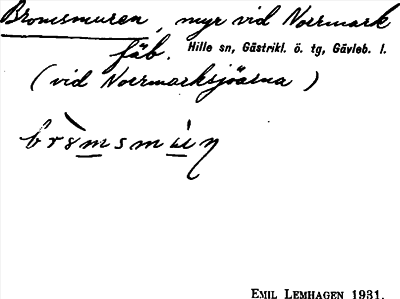 Bromsmuren, myr vid Norrmark
fäb. Hille sn, Gästrikl. ö. tg, Gävleb. l.
(vid Norrmarksjöarna)
EMIL LEMHAGEN 1931.